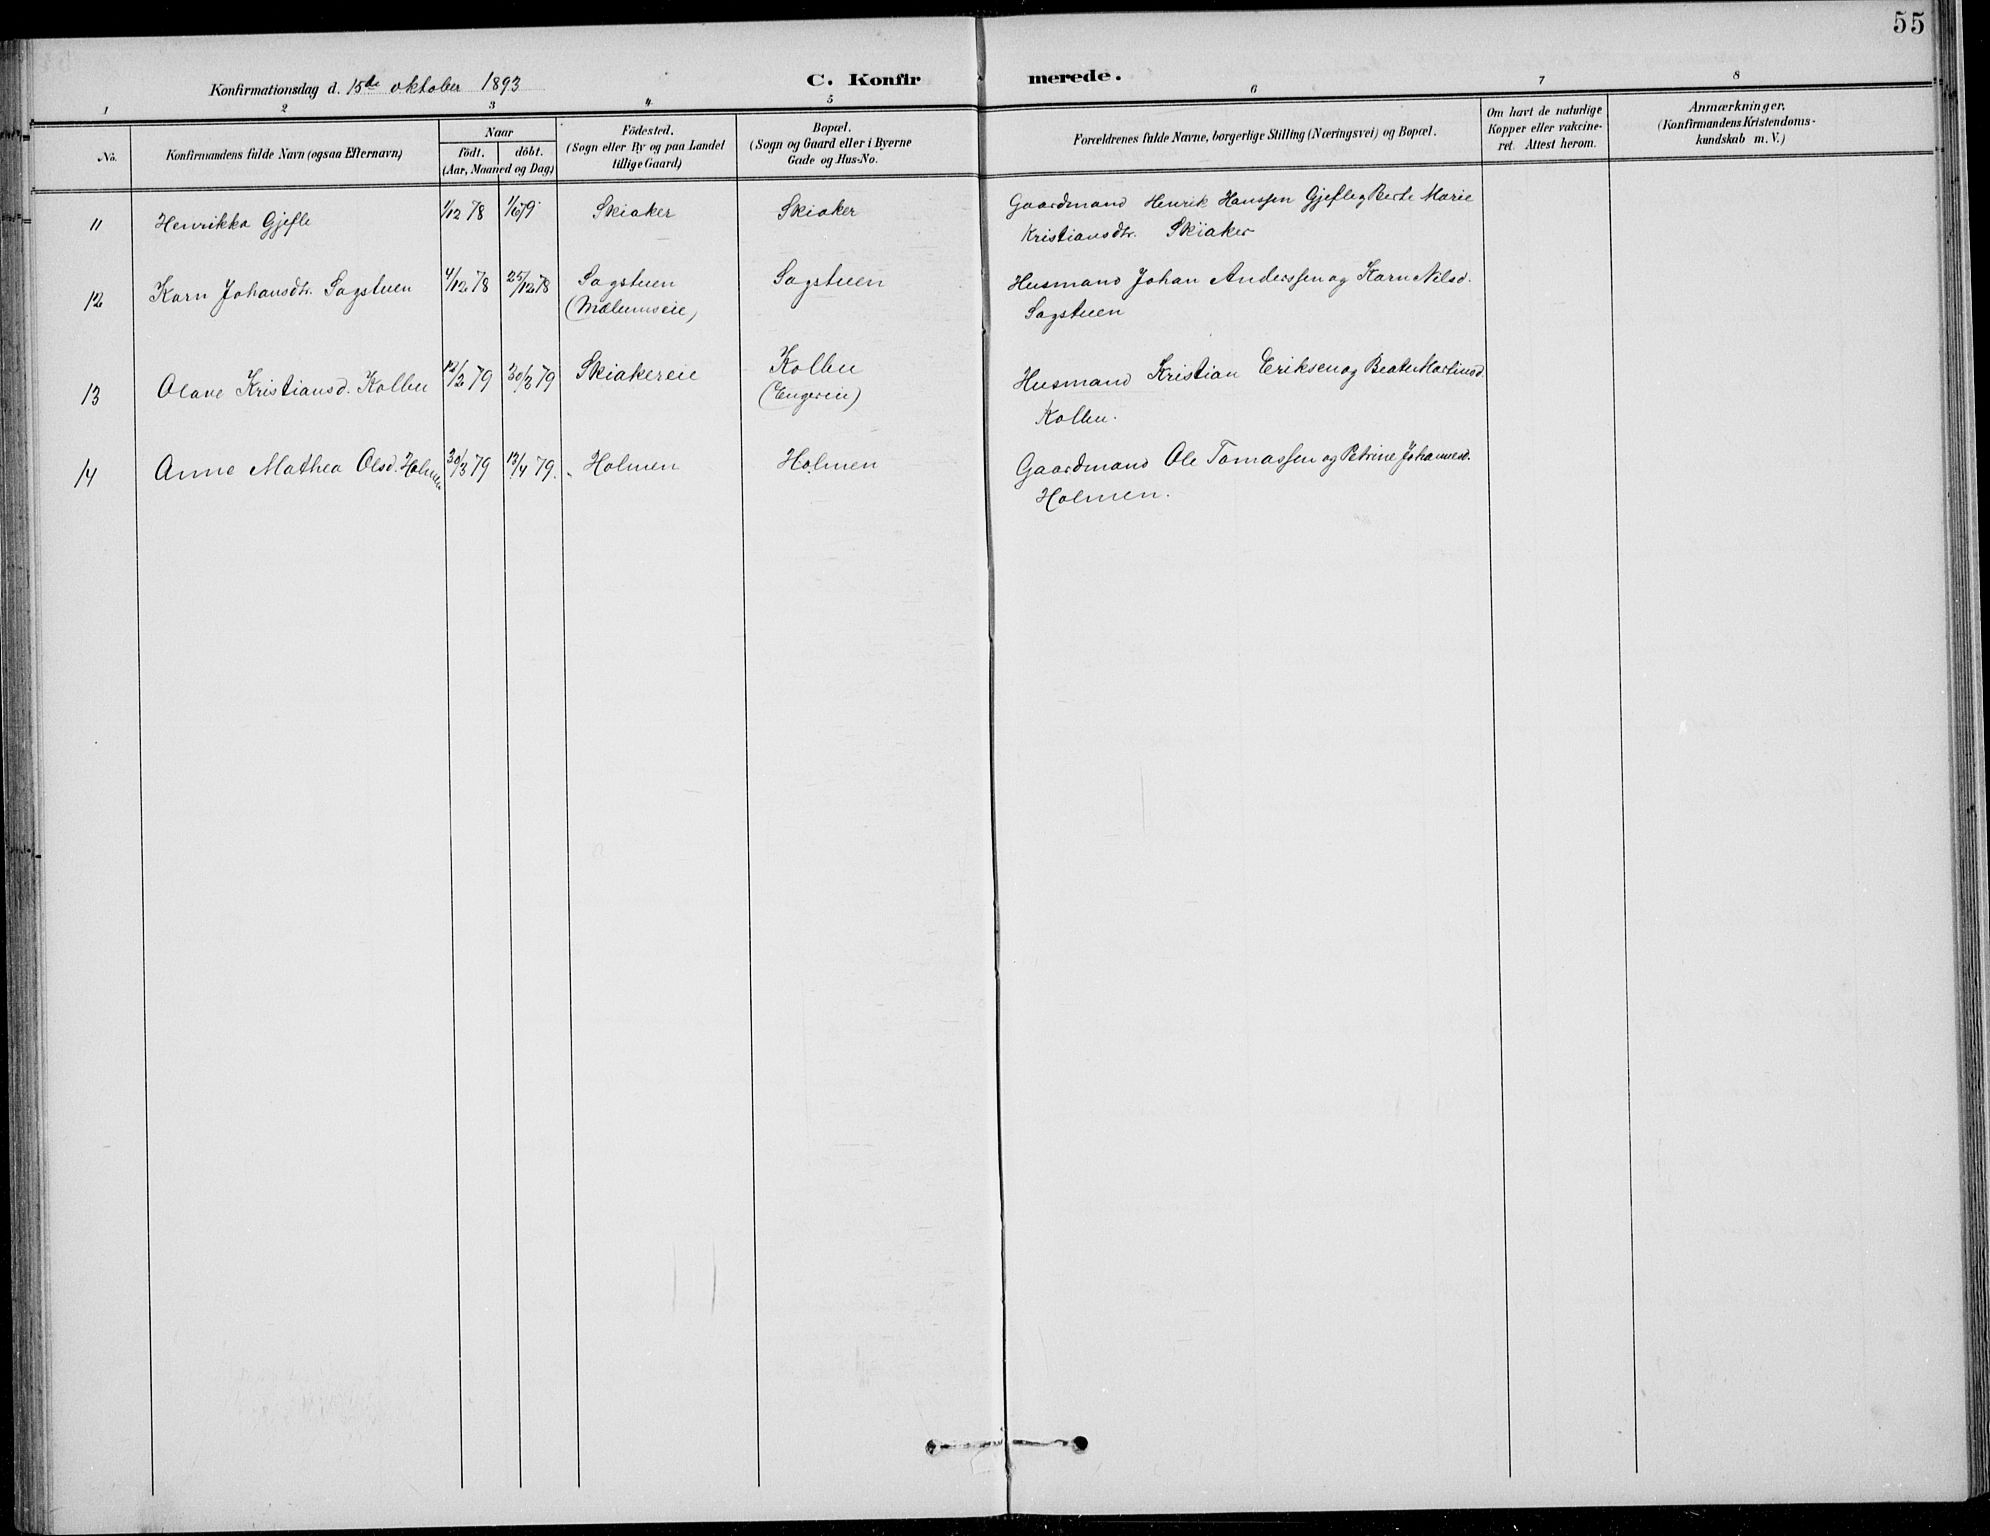 55
Konfirmationsdag d. 15de oktober 1893
C. Konfirmerede.
1 2 3 4 5 6 7 8
No.
Konfirmandens fulde Navn (ogsaa Efternavn)
Naar
födt. döbt.
(Aar, Maaned og Dag)
Födested.
(Sogn eller By og paa Landet
tillige Gaard)
Bopæl.
(Sogn og Gaard eller i Byerne
Gade og Hus-No.
Forældrenes fulde Navne, borgerlige Stilling (Næringsvei) og Bopæl.
Om havt de naturlige
Kopper eller vakcine-
ret. Attest herom.
Anmærkninger.
(Konfirmandens Kristendoms-
kundskab m. V.)
11 Henrikka Gjefle 1/12 78 1/6 79 Skiaker Skiaker Gaardmand Henrik Hanssen Gjefle og Berte Marie
Kristiansdtr. Skiaker
12 Karn Johansdtr. Sagstuen 4/12 78 25/12 78 Sagstuen Sagstuen Husmand Johan Anderssen og Karn Nilsd.
(Mælumseie) Sagstuen
13 Olave Kristiansd. Kolbu 12/2 79 30/3 79 Skiakereie Kolbu Husmand Kristian Eriksen og Beate Martinsd.
(Engereie) Kolbu.
14 Anne Mathea Olsd. Holmen 30/3 79 13/4 79. Holmen Holmen Gaardmand Ole Tomassen og Petrine Johannesd.
Holmen.